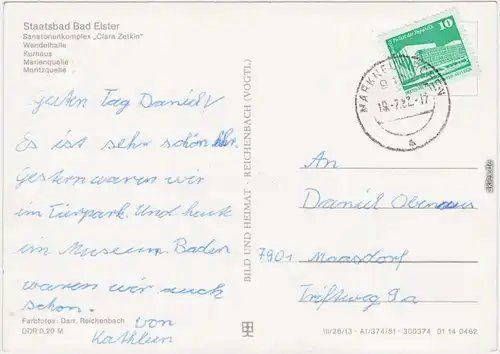 Staatsbad Bad Elster
Sanatorienkomplex „Clara Zetkin“
Wandelhalle
Kurhaus
Marienquelle
Moritzquelle
Guten Tag Daniel!
Es ist sehr schön hier.
Gestern waren wir
im Tierpark. Und heute
im Museum. Baden
waren wir auch
schon.
von
Kathleen
Farbfotos: Darr, Reichenbach
DDR 0,20 M
BILD UND HEIMAT · REICHENBACH (VOGTL)
10
19.-7.82.-17
a
An
Daniel
7901 Maasdorf
Triftweg 9a
III/26/13 - A1/374/81 - 300374 01 14 0462